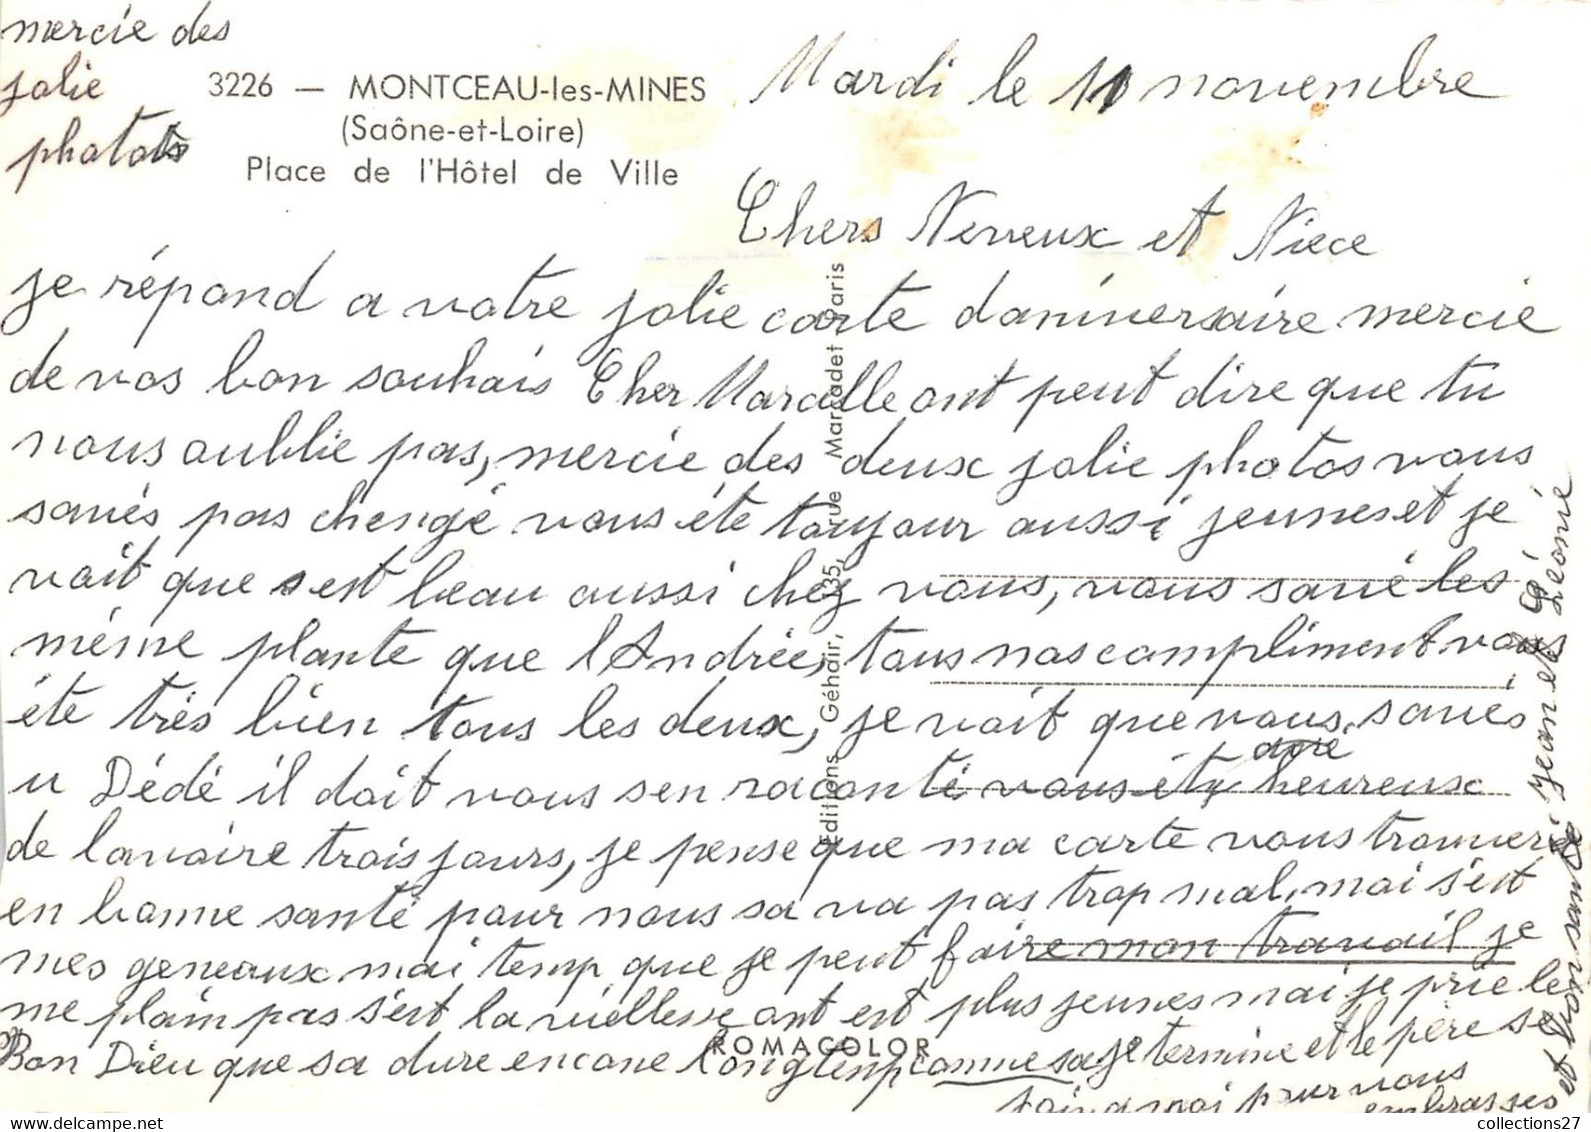 mercie des
jolie
photots
3226 — MONTCEAU-les-MINES
(Saône-et-Loire)
Place de l'Hôtel de Ville
Mardi le 11 novembre
Chers Neveux et Niece
je répond a votre jolie carte daniversaire mercie
de vos bon souhais Cher Marcelle ont peut dire que tu
nous oublie pas, mercie des deux jolie photos vous
saviés pas chengé vous éte toujour aussi jeunes et je
voit que sest beau aussi chez vous, vous savié les
même plante que l'Andrée, tous nos compliment vous
éte très bien tous les deux, je voit que vous saviés
u Dédé il doit vous sen raconté vous éty heureux
de lavoire trois jours, je pense que ma carte vous trouver
en bonne santé pour nous sa va pas trop mal, mai s'est
mes geneaux mai temp que je peut faire mon travail je
me plain pas s'est la viellesse ont est plus jeunes mai je prie le
Bon Dieu que sa dure encore longtemp comme sa je termine et le père se
join a moi pour vous
embrasses
et bon santé Jean et Léonie
Editions Géhair, 135, rue Marcadet Paris
ROMACOLOR
collections27